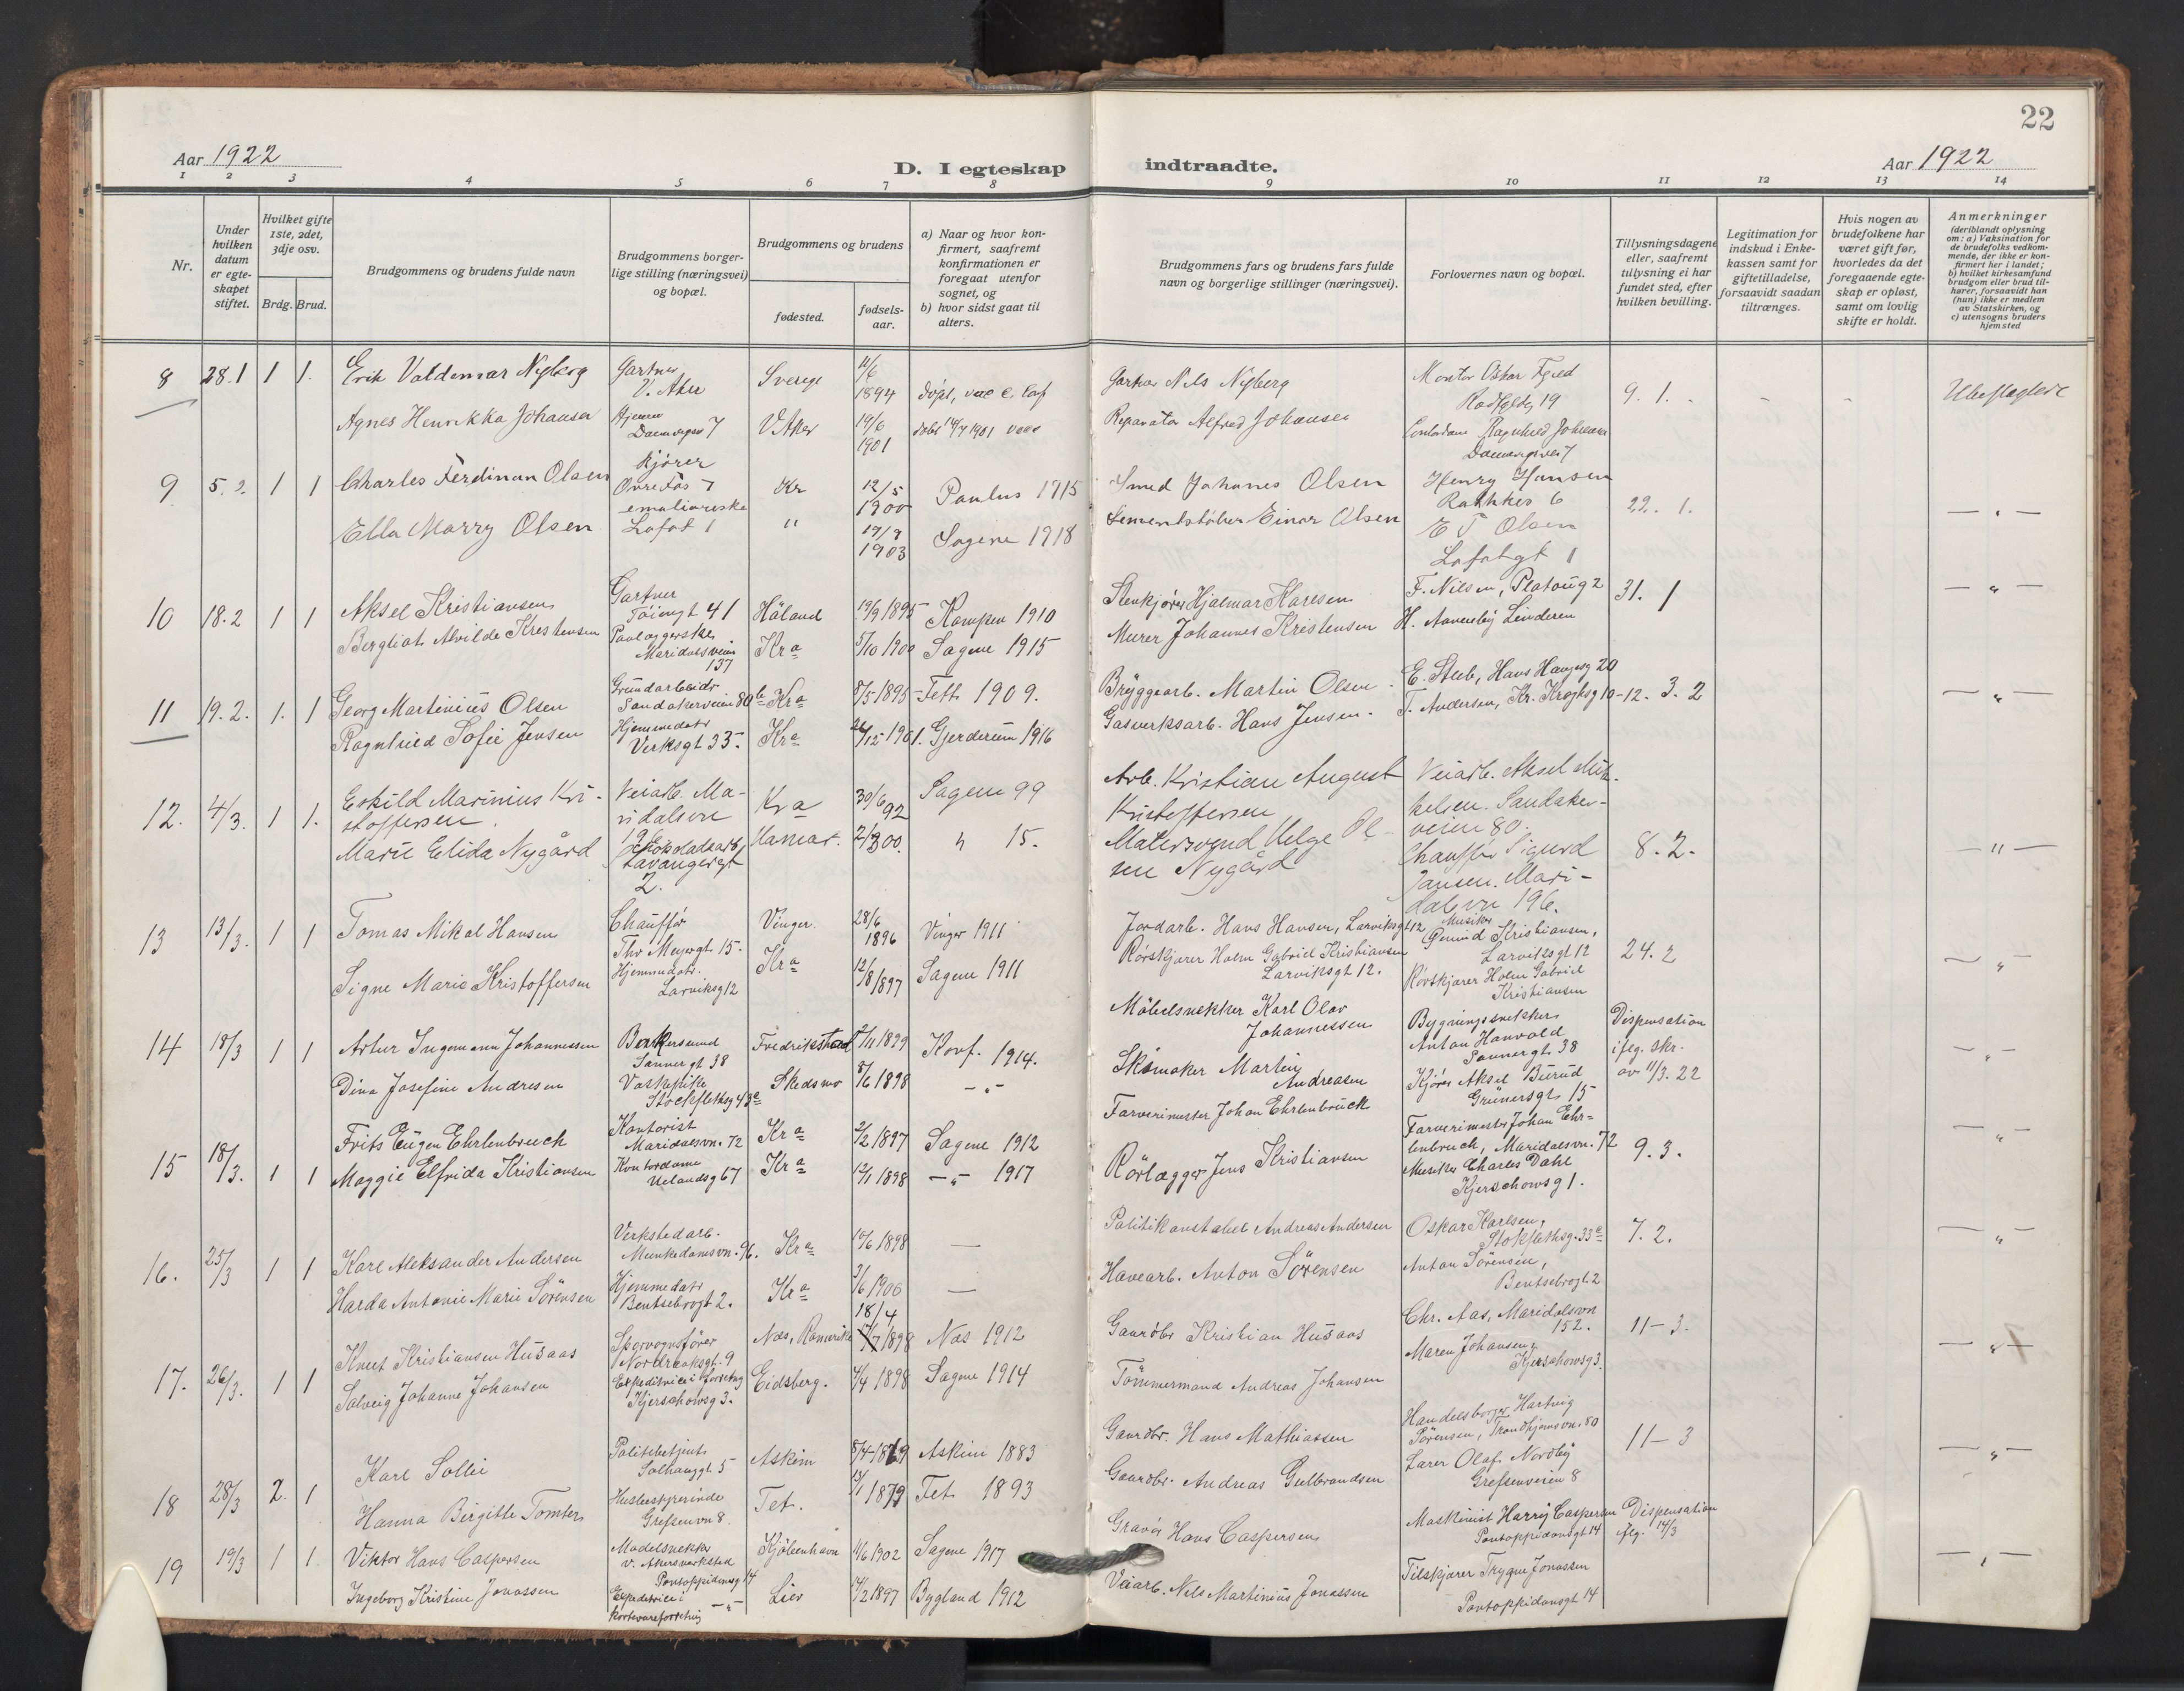 22
Aar 1922
D. I egteskap indtraadte.
Aar 1922
1 2 3 4 5 6 7 8 9 10 11 12 13 14
Nr.
Under hvilken datum er egteskapet stiftet.
Hvilket gifte 1ste, 2det, 3dje osv.
Brdg. Brud.
Brudgommens og brudens fulde navn
Brudgommens borgerlige stilling (næringsvei) og bopæl.
Brudgommens og brudens
fødested.
fødselsaar.
a) Naar og hvor konfirmert, saafremt konfirmationen er foregaat utenfor sognet, og
b) hvor sidst gaat til alters.
Brudgommens fars og brudens fars fulde navn og borgerlige stillinger (næringsvei).
Forlovernes navn og bopæl.
Tillysningsdagene eller, saafremt tillysning ei har fundet sted, efter hvilken bevilling.
Legitimation for indskud i Enkekassen samt for giftetilladelse, forsaavidt saadan tiltrænges.
Hvis nogen av brudefolkene har været gift før, hvorledes da det foregaaende egteskap er opløst, samt om lovlig skifte er holdt.
Anmerkninger
(deriblandt oplysning om: a) Vaksination for de brudefolks vedkommende, der ikke er konfirmert her i landet; b) hvilket kirkesamfund brudgom eller brud tilhører, forsaavidt han (hun) ikke er medlem av Statskirken, og c) utensogns bruders hjemsted
8 28.1 1 1. Erik Valdemar Nyberg Gartner V. Aker Sverige 11/6 1894 Gartner Nils Nyberg Montør Oskar 19 9. 1.
Agnes Henrikka Johansen Hjemme 7 V. Aker 19/6 1901 Reparatør Alfred Johansen Ragnhild Johansen 7
9 5. 2. 1 1 Charles Ferdinan Olsen Kjører Øvre Fos 7 Kr 12/5 1900 Paulus 1915 Smed Johanes Olsen Henry Hansen Rathkes 6 22. 1.
Ella Marry Olsen Lofot 1 " 19/9 1903 Sagene 1918 Sementstøber Einar Olsen E T Olsen Lofotgt 1
10 18.2 1 1 Aksel Kristiansen Gartner Töiengt 41 Höland 19/9 1895 Kampen 1910 Stenkjører Hjalmar F. Nilsen, Platoug 2 31. 1
Bergliot Alvilde Kristensen Maridalsveien 137 Kra 5/10 1900 Sagene 1915 Murer Johannes Kristensen H. Linderen
11 19. 2. 1. 1 Georg Martinius Olsen Grundarbeider Sandakerveien 80b Kra 8/5 1895 Fett 1909. Bryggearb. Martin Olsen E. Steb, Hans Haugesg 20
Ragnhild Sofie Jensen Hjemmedatr Verksgt 33. Kra 26/12 1901. Gjerderum 1916 Gasverksarb. Hans Jensen. T. Andersen, Kr. Kroghsg 10 12. 3. 2
12. 4/3. 1 1. Eskild Marinius Kristoffersen. Veiarb. Maridalsvn 196 Kra 30/6 92 Sagene 99 Arb. Kristian August Kristoffersen Veiarb. Aksel Mikkelsen. Sandakerveien 80.
Marie Elida Nygård Sjokoladearb. Stavangergt 2. Hamar. 2/3 00. " 15. Malersvend Helge Olsen Nygård Chauffør Sigurd Jansen. Maridalsvn 196. 8. 2.
13 13/3. 1 1 Tomas Mikal Hansen Chauffør Thv Meyersgt 15. Vinger. 28/6 1896 Vinger 1911 Jordarb. Hans Hansen, Larviksgt 12 Musiker Kristiansen, Larviksgt 12 24. 2
Signe Marie Kristoffersen Hjemmedatr. Larviksg 12 Kra 12/8 1897 Sagene 1911 Rørskjærer Holm Gabriel Kristiansen Larviksgt 12. Rørskjærer Holm Gabriel Kristiansen
14 18/3 1 1 Artur Ingemann Johannessen Bakersvend Sannergt 38 Fredrikstad /11 1899 Konf. 1914. Möbelsnekker Karl Olav Johannessen Bygningssnekker Anton Hanvold Sannergt. 38 Dispensation iflg. Skr. av 11/3. 22
Dina Josefine Andresen Vaskepike Stockflethsg 43c Skedsmo 8/6 1898 — " — Skomaker Martin Andreasen Kjører Aksel Burud Grünersgt. 15
15 18/3. 1 1 Frits Eugen Ehrlenbruch Kontorist Maridalsvn. 72 Kra 2/2 1897 Sagene 1912 Farverimester Johan Ehrlenbruck Farverimester Johan Ehrlenbruch, Maridalsvn. 72 9. 3.
Maggie Elfrida Kristiansen Kontordame Uelandsg 67 Kra 12/1 1898 — " — 1917 Rörlægger Jens Kristiansen Musiker Charles Dahl Kjerschowsg 1.
16. 25/3 1 1 Karl Aleksander Andersen Verkstedarb. Munkedamsvn. 96. Kra 10/6 1898 — Politikonstabel Andreas Andersen Oskar Karlsen, Stokflethsg. 33c 7. 2.
Harda Antonie Marie Sörensen Hjemmedatr Bentsebrogt 2. Kra 3/6 1900 — Havearb. Anton Sörensen Anton Sörensen, Bentsebrogt. 2
17. 26/3. 1 1 Knut Kristiansen Husaas Sporvognsfører Nordraaksgt. 9 Næs, Romerike 18/4 1898 Næs 1912 Gaardbr Kristian Husaas Chr. Aas, Maridalsvn 152. 11 – 3.
Solveig Johanne Johansen Expeditrice i forretning Kjerschowsg 3. Eidsberg. 4/4 1898 Sagene 1914 Tömmermand Andreas Johansen Maren Johansen, Kjerschowsg 3.
18 28/3 2. 1 Karl Sollie Politibetjent Solhauggt. 5 Askim 8/4 1869 Askim 1883 Gaardbr. Hans Mathiassen Handelsborger Hartvig Sørensen, Trondhjemsvn. 80 11 – 3
Hanna Birgitte Tomter Husbestyrerinde Grefsenvn 8. Fet. 12/1 1879 Fet 1893 Gaardbr. Andreas Gulbrandsen Lærer Olaf Nordby Grefsenveien 8
19 19/3 1 1 Viktor Hans Caspersen Modelsnekker v. Akers verksted Pontoppidansg 14 Kjöbenhavn 11/6 1902 Sagene 1917 Gravør Hans Caspersen Maskinist Harry Caspersen Pontoppidansgt 14 Dispensation iflg. 14/3
Ingeborg Kristine Jonassen Expeditrice i kortevareforretning — " — Lier 14/2 1897 Bygland 1912 Veiarb. Nils Martinius Jonassen Filskjærer Trygve Jonassen Pontoppidansgt 14